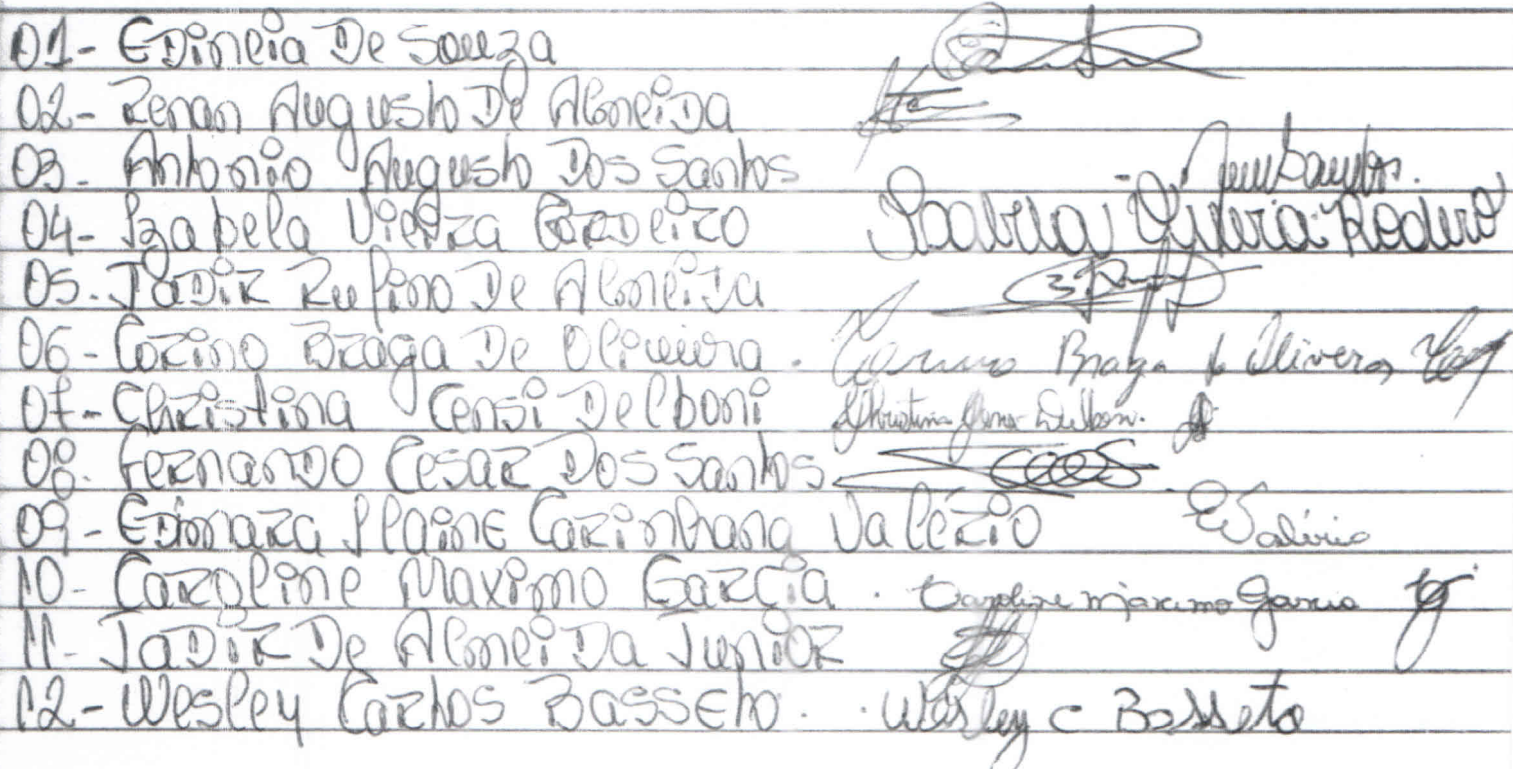 01- Edineia De Souza
02- Renan Augusto De Almeida
03- Antonio Augusto Dos Santos
04- Izabela Vieira Cordeiro
05. Jadir Rufino De Almeida
06- Corino Braga De Oliveira. Corino Braga de Oliveira
07- Christina Censi Delboni
08. Fernando Cesar Dos Santos
09- Edimara Slaine Carinhana Valério EValério
10- Caroline Maximo Garcia. Caroline Maximo Garcia
11- Jadir De Almeida Junior
12- Wesley Carlos Basseto. Wesley C Basseto